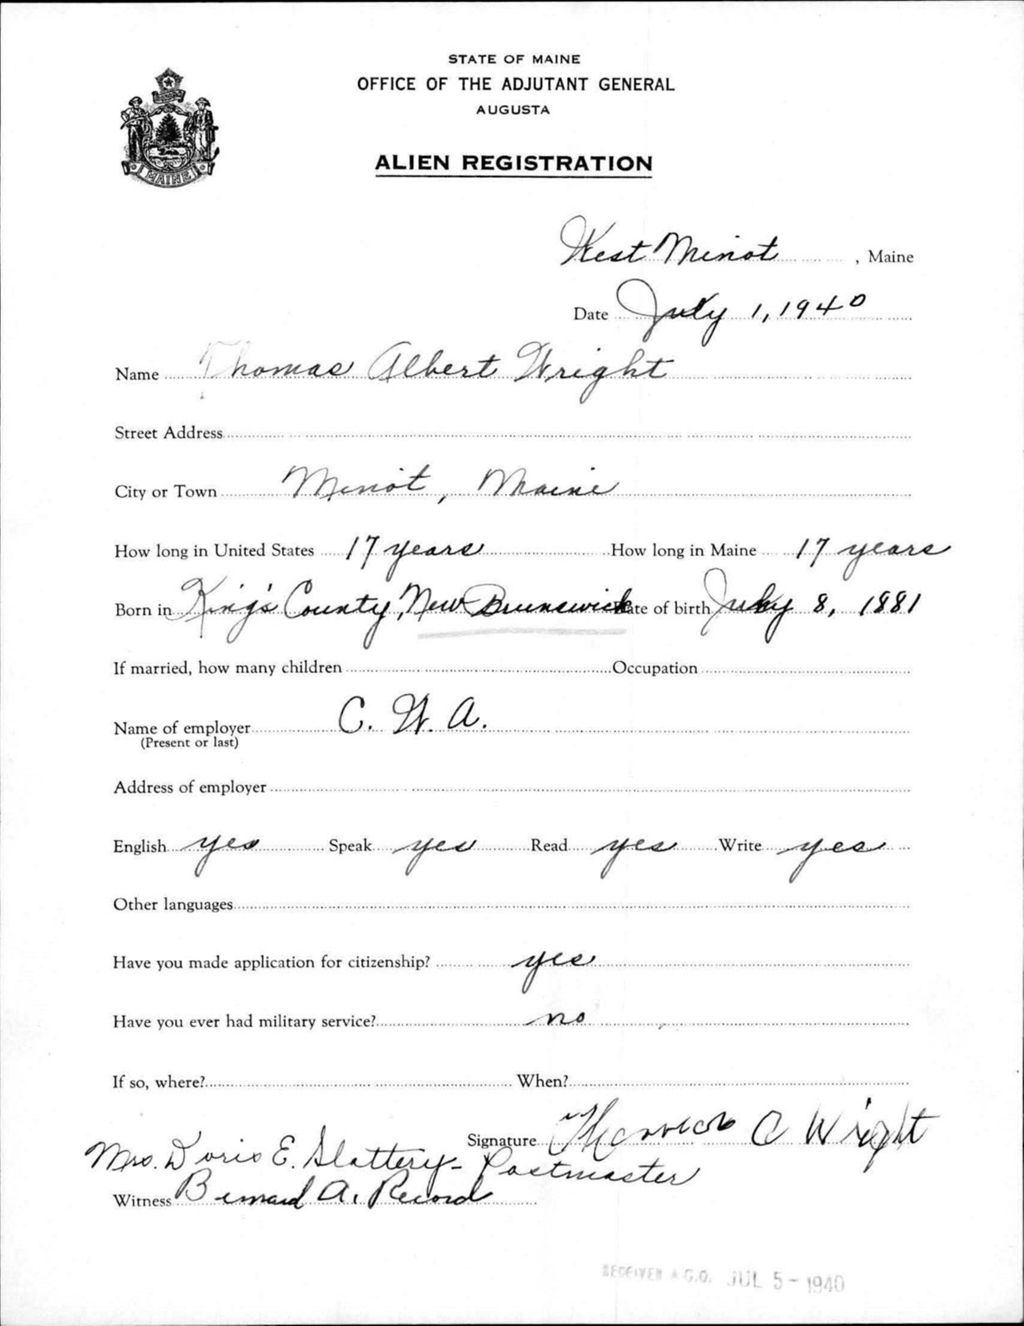 STATE OF MAINE
OFFICE OF THE ADJUTANT GENERAL
AUGUSTA
ALIEN REGISTRATION
MAINE
West Minot, Maine
Date July 1, 1940
Name Thomas Albert Wright
Street Address
City or Town Minot, Maine
How long in United States 17 years How long in Maine 17 years
Born in King's County, New Brunswick ate of birth July 8, 1881
If married, how many children Occupation
Name of employer C. W. A.
(Present or last)
Address of employer
English yes Speak yes Read yes Write yes
Other languages
Have you made application for citizenship? yes
Have you ever had military service? no
If so, where? When?
Signature A Wright
Mrs. Doris E. Slattery - Postmaster
Witness Bernard A. Record
RECEIVED A.G.O. JUL 5 - 1940